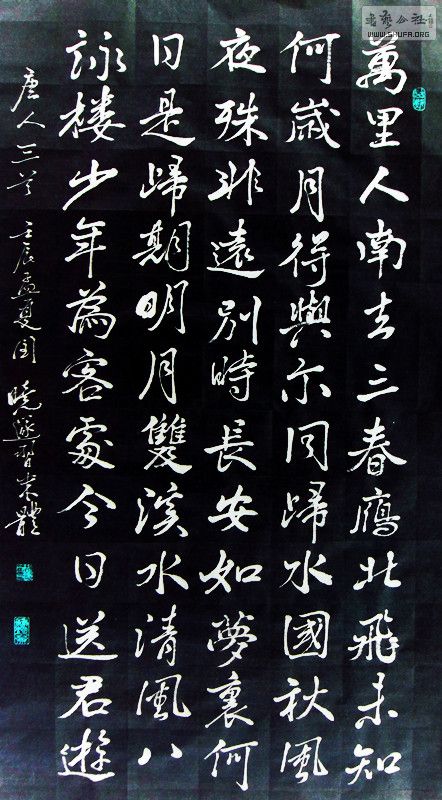 書藝公社
WWW.SHUFA.ORG
萬里人南去三春鴈北飛未知
何歲月得與尔同歸水國秋風
夜殊非遠別時長安如夢裏何
日是歸期明月雙溪水清風八
詠楼少年為客處今日送君遊
唐人三首 壬辰孟夏周 曉遜習米體